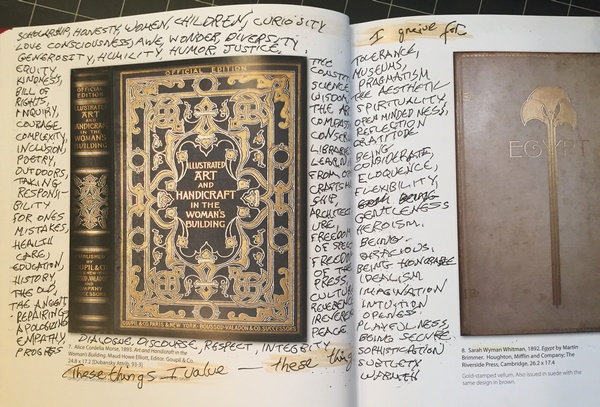 SCHOLARSHIP, HONESTY, WOMEN, CHILDREN, CURIOSITY
LOVE CONSCIOUSNESS, AWE, WONDER, DIVERSITY,
GENEROSITY, HUMILITY, HUMOR JUSTICE,
EQUITY
KINDNESS,
BILL OF
RIGHTS
ENQUIRY,
COURAGE
COMPLEXITY,
INCLUSION
POETRY,
OUTDOORS,
TAKING
RESPONSI-
BILITY
FOR ONES
MISTAKES,
HEALTH
CARE,
EDUCATION,
HISTORY,
THE OLD,
THE ANCIENT
REPAIRING
APOLOGIZING
EMPATHY,
PROGRESS
OFFICIAL
EDITION
ILLUSTRATED
ART
AND
HANDICRAFT
IN THE
WOMAN'S
BUILDING
PUBLISHED
BY
GOUPIL & CO.
OFFICIAL EDITION
ILLUSTRATED
ART
AND
HANDICRAFT
IN THE
WOMAN'S
BUILDING
GOUPIL & CO PARIS & NEW-YORK - BOUSSOD-VALADON & CO SUCCESSORS
THE
CONSTIT
SCIENCE
WISDOM,
THE AR
COMPASS
CONSER
LIBRARIE
LEARNI
FROM OT
CRAFTSMA
SHIP,
ARCHITECT
URE,
FREEDOM
OF SPEEC
FREEDOM
OF THE
PRESS,
CULTU
REVERENC
REVERE
PEACE
DIALOGUE, DISCOURSE, RESPECT, INTEGRITY
7. Alice Cordelia Morse, 1893. Art and Handicraft in the
Woman's Building. Maud Howe Elliott, Editor. Goupil & Co.
24.8 x 17.2 [Dubansky Attrib. 93-5]
These things I value — these thing
I grieve for
TOLERANCE,
MUSEUMS,
PRAGMATISM
THE AESTHETIC
SPIRITUALITY,
OPEN MINDEDNESS,
REFLECTION
GRATITUDE
BEING
CONSIDERATE,
ELOQUENCE,
FLEXIBILITY,
BEING
GENTLENESS
HEROISM.
BEING
GRACIOUS,
BEING HONORABLE
IDEALISM
IMAGINATION
INTUITION
OPENESS
PLAYFULNESS,
BEING SECURE
SOPHISTICATION
SUBTLETY
WARMTH
EGYPT
8. Sarah Wyman Whitman, 1892. Egypt by Martin
Brimmer. Houghton, Mifflin and Company, The
Riverside Press, Cambridge, 26.2 x 17.4
Gold-stamped vellum. Also issued in suede with the
same design in brown.